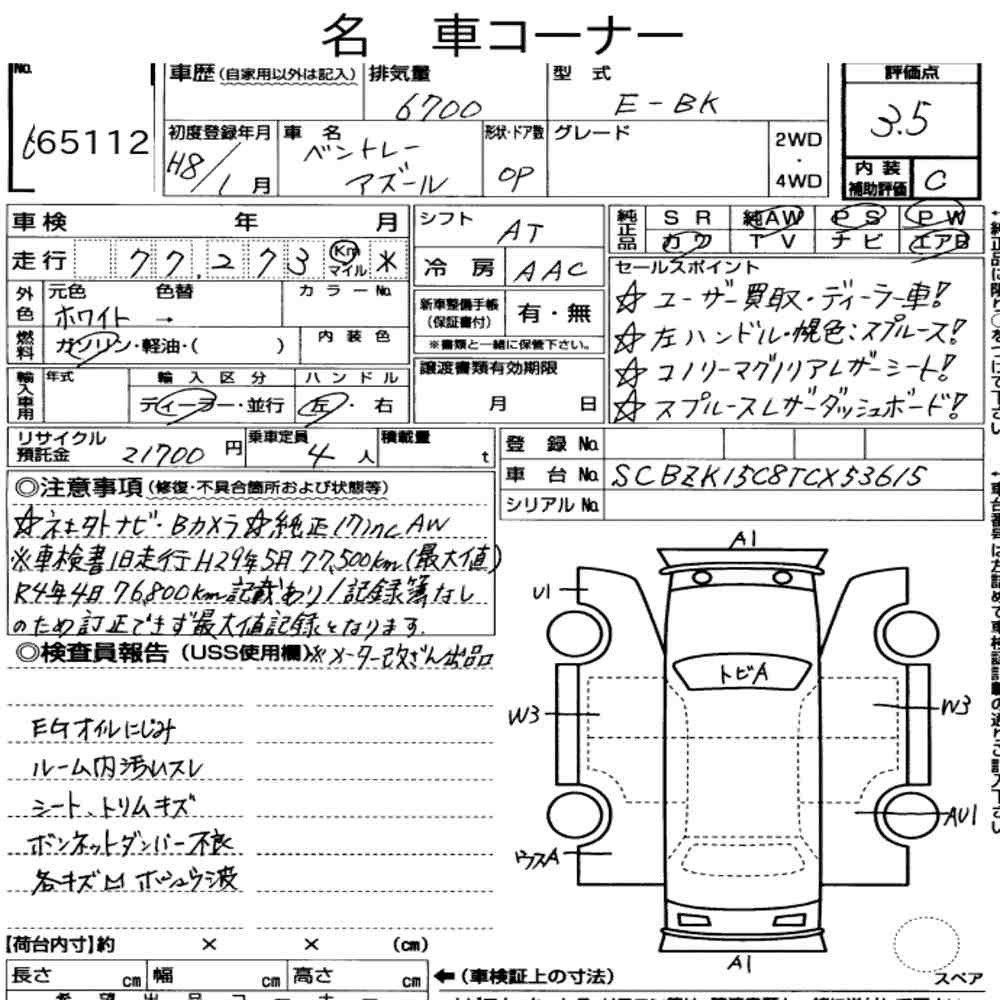 名 車コーナー
No.
665112
車歴 (自家用以外は記入)
排気量
6700
型 式
E-BK
評価点
3.5
初度登録年月
H8/1月
車 名
ベントレー
アズール
形状・ドア数
OP
グレード
2WD
・
4WD
内 装
補助評価
C
車検 年 月
シフト
AT
純正品
SR 純AW PS PW
カワ TV ナビ エアB
走行 77.273 Km マイル ※
冷 房 AAC
セールスポイント
☆ ユーザー買取・ディーラー車!
☆ 左ハンドル・幌色:スプルース!
☆ コノリーマグノリアレザーシート!
☆ スプルースレザーダッシュボード!
外色
元色 色替
ホワイト →
カラーNo.
新車整備手帳
(保証書付)
有・無
※書類と一緒に保管下さい。
燃料
ガソリン・軽油・( )
内 装 色
譲渡書類有効期限
月 日
輸入車用
年式
輸 入 区 分
ディーラー・並行
ハ ン ド ル
左・右
リサイクル
預託金 21700 円
乗車定員
4 人
積載量
t
登 録 No.
車 台 No. SCBZK15C8TCX53615
シリアルNo.
◎注意事項 (修復・不具合箇所および状態等)
☆社外ナビ・Bカメラ ☆純正17inc AW
※車検書旧走行 H29年5月 77,500km (最大値)
R4年4月 76,800km記載あり/記録簿なし
のため訂正できず最大値記録となります.
◎検査員報告 (USS使用欄) ※メーター改ざん出品
EGオイルにじみ
ルーム内汚れスレ
シート、トリムキズ
ボンネットダンパー不良
各キズ凹 ホシュウ波
A1
U1
トビA
W3
W3
AU1
ウスA
A1
スペア
【荷台内寸】約 × × (cm)
長さ cm 幅 cm 高さ cm
←(車検証上の寸法)